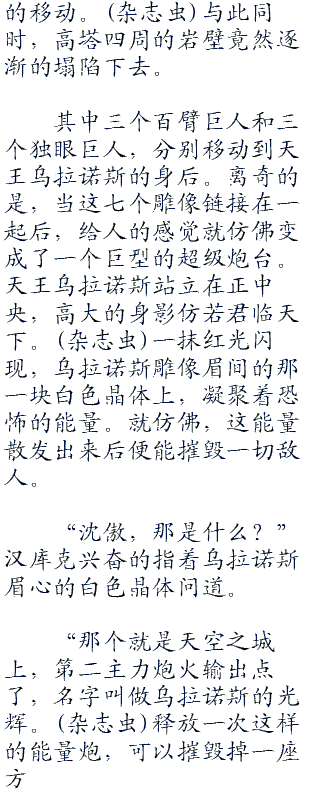 的移动。(杂志虫)与此同
时，高塔四周的岩壁竟然逐
渐的塌陷下去。
其中三个百臂巨人和三
个独眼巨人，分别移动到天
王乌拉诺斯的身后。离奇的
是，当这七个雕像链接在一
起后，给人的感觉就仿佛变
成了一个巨型的超级炮台。
天王乌拉诺斯站立在正中
央，高大的身影仿若君临天
下。(杂志虫)一抹红光闪
现，乌拉诺斯雕像眉间的那
一块白色晶体上，凝聚着恐
怖的能量。就仿佛，这能量
散发出来后便能摧毁一切敌
人。
“沈傲，那是什么？”
汉库克兴奋的指着乌拉诺斯
眉心的白色晶体问道。
“那个就是天空之城
上，第二主力炮火输出点
了，名字叫做乌拉诺斯的光
辉。(杂志虫)释放一次这样
的能量炮，可以摧毁掉一座
方